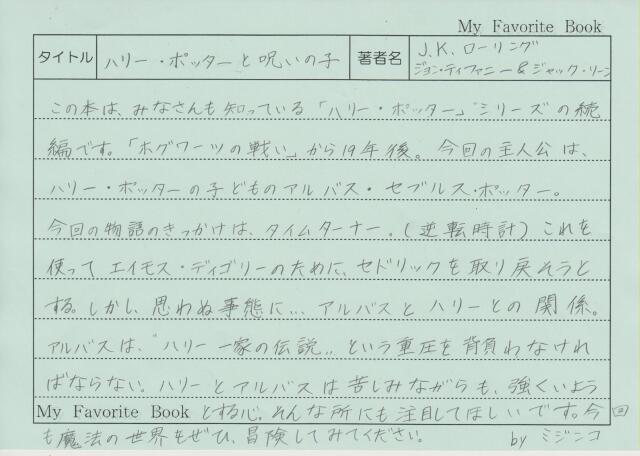 My Favorite Book
タイトル ハリー・ポッターと呪いの子 著者名 J.K.ローリング
ジョン・ティファニー&ジャック・ソーン
この本は、みなさんも知っている「ハリー・ポッター」シリーズの続
編です。「ホグワーツの戦い」から19年後。今回の主人公は、
ハリー・ポッターの子どものアルバス・セブルス・ポッター。
今回の物語のきっかけは、タイムターナー。(逆転時計)これを
使ってエイモス・ディゴリーのために、セドリックを取り戻そうと
する。しかし、思わぬ事態に... アルバスとハリーとの関係。
アルバスは、"ハリー一家の伝説"という重圧を背負わなけれ
ばならない。ハリーとアルバスは苦しみながらも、強くいよう
My Favorite Book とする心。そんな所にも注目してほしいです。今回
も魔法の世界をぜひ、冒険してみてください。 by ミジンコ